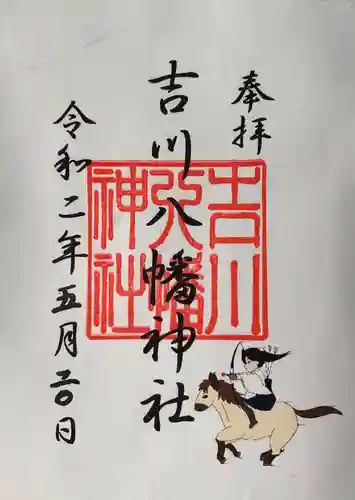 奉拝
吉川八幡神社
令和二年五月二〇日
吉川
八幡
神社